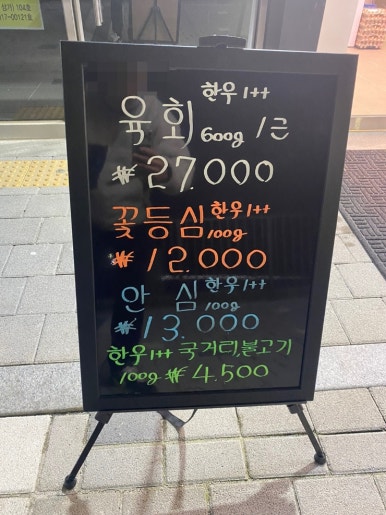 한우 1++
육회 600g 1근
₩27.000
꽃등심 한우1++ 100g
₩12.000
안심 한우1++ 100g
₩13.000
한우1++ 국거리,불고기
100g ₩4.500